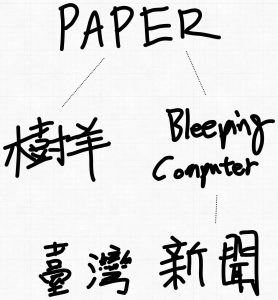 PAPER
樹羊
Bleeping
Computer
臺灣 新聞